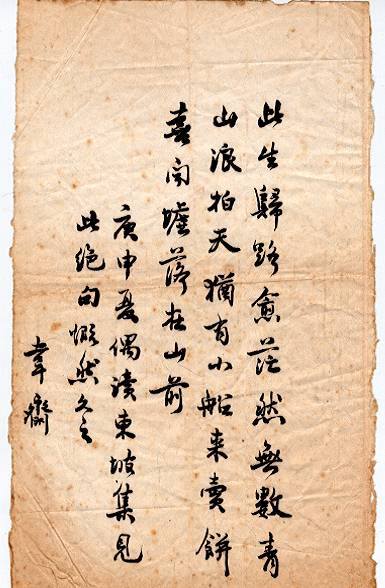 此生歸路愈茫然無數青
山浪拍天猶有小船来賣餅
喜闻墟落在山前
庚申夏偶读東坡集見
此绝句慨然久之
韋齋